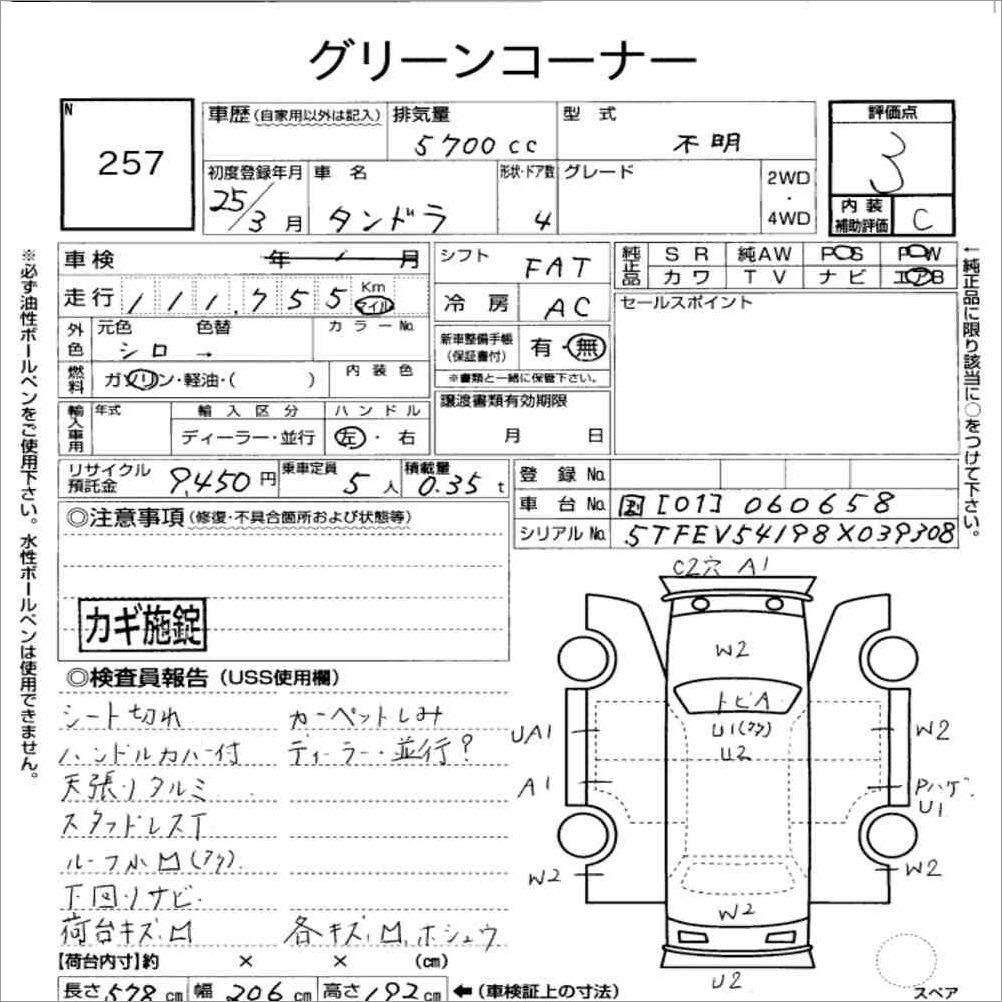 グリーンコーナー
N
257
車歴(自家用以外は記入)
排気量
5700cc
型 式
不明
評価点
3
初度登録年月
25/3月
車 名
タンドラ
形状・ドア数
4
グレード
2WD
・
4WD
内 装
補助評価
C
※必ず油性ボールペンをご使用下さい。水性ボールペンは使用できません。
車検 年 月
走行 111,755 Km マイル
外色 元色 シロ 色替 → カラーNo.
燃料 ガソリン・軽油・( ) 内装色
輸入車用 年式 輸入区分 ハンドル
ディーラー・並行 左・右
シフト FAT
冷房 AC
新車整備手帳
(保証書付)
有・無
※書類と一緒に保管下さい。
譲渡書類有効期限
月 日
純正品 SR 純AW PS PW
カワ TV ナビ エアB
セールスポイント
←純正品に限り該当に○をつけて下さい。
リサイクル
預託金 9,450円
乗車定員 5人
積載量 0.35t
登録No.
車台No. 国[01]060658
シリアルNo. 5TFEV54198X039308
◎注意事項(修復・不具合箇所および状態等)
カギ施錠
◎検査員報告(USS使用欄)
シート切れ カーペットシミ
ハンドルカバー付 ディーラー・並行?
天張りタルミ
スタッドレスT
ルーフ小凹(アク)
下回りサビ
荷台キズ凹 各キズ凹ホシュウ
【荷台内寸】約 × × (cm)
長さ578cm 幅206cm 高さ192cm ←(車検証上の寸法)
C2穴 A1
W2
トビA
U1(アク)
U2
UA1
W2
A1
Pハゲ
U1
W2
W2
W2
U2
スペア